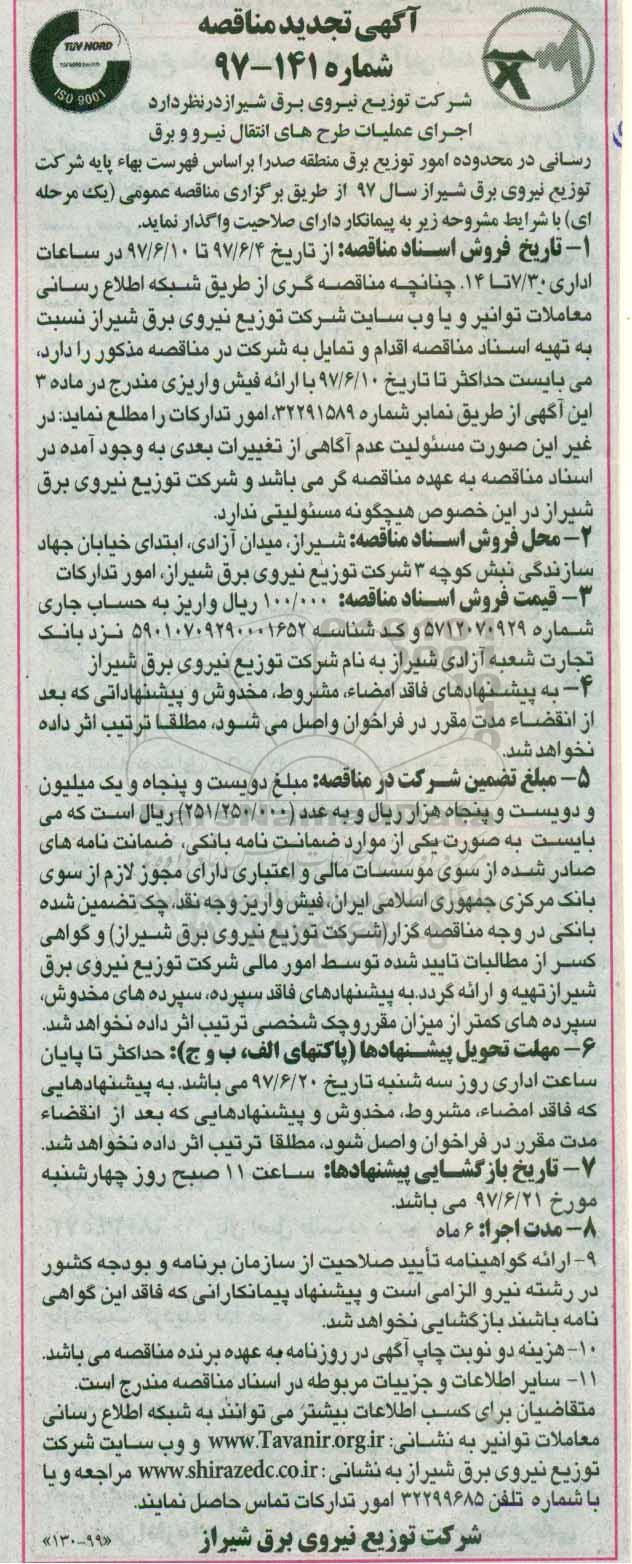 آگهی تجدید مناقصه
شماره ۱۴۱-۹۷
TÜV NORD
ISO 9001
شرکت توزیع نیروی برق شیراز در نظر دارد
اجرای عملیات طرح های انتقال نیرو و برق
رسانی در محدوده امور توزیع برق منطقه صدرا براساس فهرست بهاء پایه شرکت
توزیع نیروی برق شیراز سال ۹۷ از طریق برگزاری مناقصه عمومی (یک مرحله
ای) با شرایط مشروحه زیر به پیمانکار دارای صلاحیت واگذار نماید.
۱- تاریخ فروش اسناد مناقصه: از تاریخ ۹۷/۶/۴ تا ۹۷/۶/۱۰ در ساعات
اداری ۷/۳۰ تا ۱۴. چنانچه مناقصه گری از طریق شبکه اطلاع رسانی
معاملات توانیر و یا وب سایت شرکت توزیع نیروی برق شیراز نسبت
به تهیه اسناد مناقصه اقدام و تمایل به شرکت در مناقصه مذکور را دارد،
می بایست حداکثر تا تاریخ ۹۷/۶/۱۰ با ارائه فیش واریزی مندرج در ماده ۳
این آگهی از طریق نمابر شماره ۳۲۲۹۱۵۸۹، امور تدارکات را مطلع نماید: در
غیر این صورت مسئولیت عدم آگاهی از تغییرات بعدی به وجود آمده در
اسناد مناقصه به عهده مناقصه گر می باشد و شرکت توزیع نیروی برق
شیراز در این خصوص هیچگونه مسئولیتی ندارد.
۲- محل فروش اسناد مناقصه: شیراز، میدان آزادی، ابتدای خیابان جهاد
سازندگی نبش کوچه ۳ شرکت توزیع نیروی برق شیراز، امور تدارکات
۳- قیمت فروش اسناد مناقصه: ۱۰۰/۰۰۰ ریال واریز به حساب جاری
شماره ۵۷۱۲۰۷۰۹۲۹ و کد شناسه ۵۹۰۱۰۷۰۹۲۹۰۰۰۱۶۵۲ نزد بانک
تجارت شعبه آزادی شیراز به نام شرکت توزیع نیروی برق شیراز
۴- به پیشنهادهای فاقد امضاء، مشروط، مخدوش و پیشنهاداتی که بعد
از انقضاء مدت مقرر در فراخوان واصل می شود، مطلقا ترتیب اثر داده
نخواهد شد.
۵- مبلغ تضمین شرکت در مناقصه: مبلغ دویست و پنجاه و یک میلیون
و دویست و پنجاه هزار ریال و به عدد (۲۵۱/۲۵۰/۰۰۰) ریال است که می
بایست به صورت یکی از موارد ضمانت نامه بانکی، ضمانت نامه های
صادر شده از سوی مؤسسات مالی و اعتباری دارای مجوز لازم از سوی
بانک مرکزی جمهوری اسلامی ایران، فیش واریز وجه نقد، چک تضمین شده
بانکی در وجه مناقصه گزار(شرکت توزیع نیروی برق شیراز) و گواهی
کسر از مطالبات تایید شده توسط امور مالی شرکت توزیع نیروی برق
شیراز تهیه و ارائه گردد.به پیشنهادهای فاقد سپرده، سپرده های مخدوش،
سپرده های کمتر از میزان مقرر وچک شخصی ترتیب اثر داده نخواهد شد.
۶- مهلت تحویل پیشنهادها (پاکتهای الف، ب و ج): حداکثر تا پایان
ساعت اداری روز سه شنبه تاریخ ۹۷/۶/۲۰ می باشد. به پیشنهادهایی
که فاقد امضاء، مشروط، مخدوش و پیشنهادهایی که بعد از انقضاء
مدت مقرر در فراخوان واصل شود، مطلقا ترتیب اثر داده نخواهد شد.
۷- تاریخ بازگشایی پیشنهادها: ساعت ۱۱ صبح روز چهارشنبه
مورخ ۹۷/۶/۲۱ می باشد.
۸- مدت اجرا: ۶ ماه
۹- ارائه گواهینامه تأیید صلاحیت از سازمان برنامه و بودجه کشور
در رشته نیرو الزامی است و پیشنهاد پیمانکارانی که فاقد این گواهی
نامه باشند بازگشایی نخواهد شد.
۱۰- هزینه دو نوبت چاپ آگهی در روزنامه به عهده برنده مناقصه می باشد.
۱۱- سایر اطلاعات و جزییات مربوطه در اسناد مناقصه مندرج است.
متقاضیان برای کسب اطلاعات بیشتر می توانند به شبکه اطلاع رسانی
معاملات توانیر به نشانی: www.Tavanir.org.ir و وب سایت شرکت
توزیع نیروی برق شیراز به نشانی: www.shirazedc.co.ir مراجعه و یا
با شماره تلفن ۳۲۲۹۹۶۸۵ امور تدارکات تماس حاصل نمایند.
شرکت توزیع نیروی برق شیراز
«۱۳۰-۹۹»